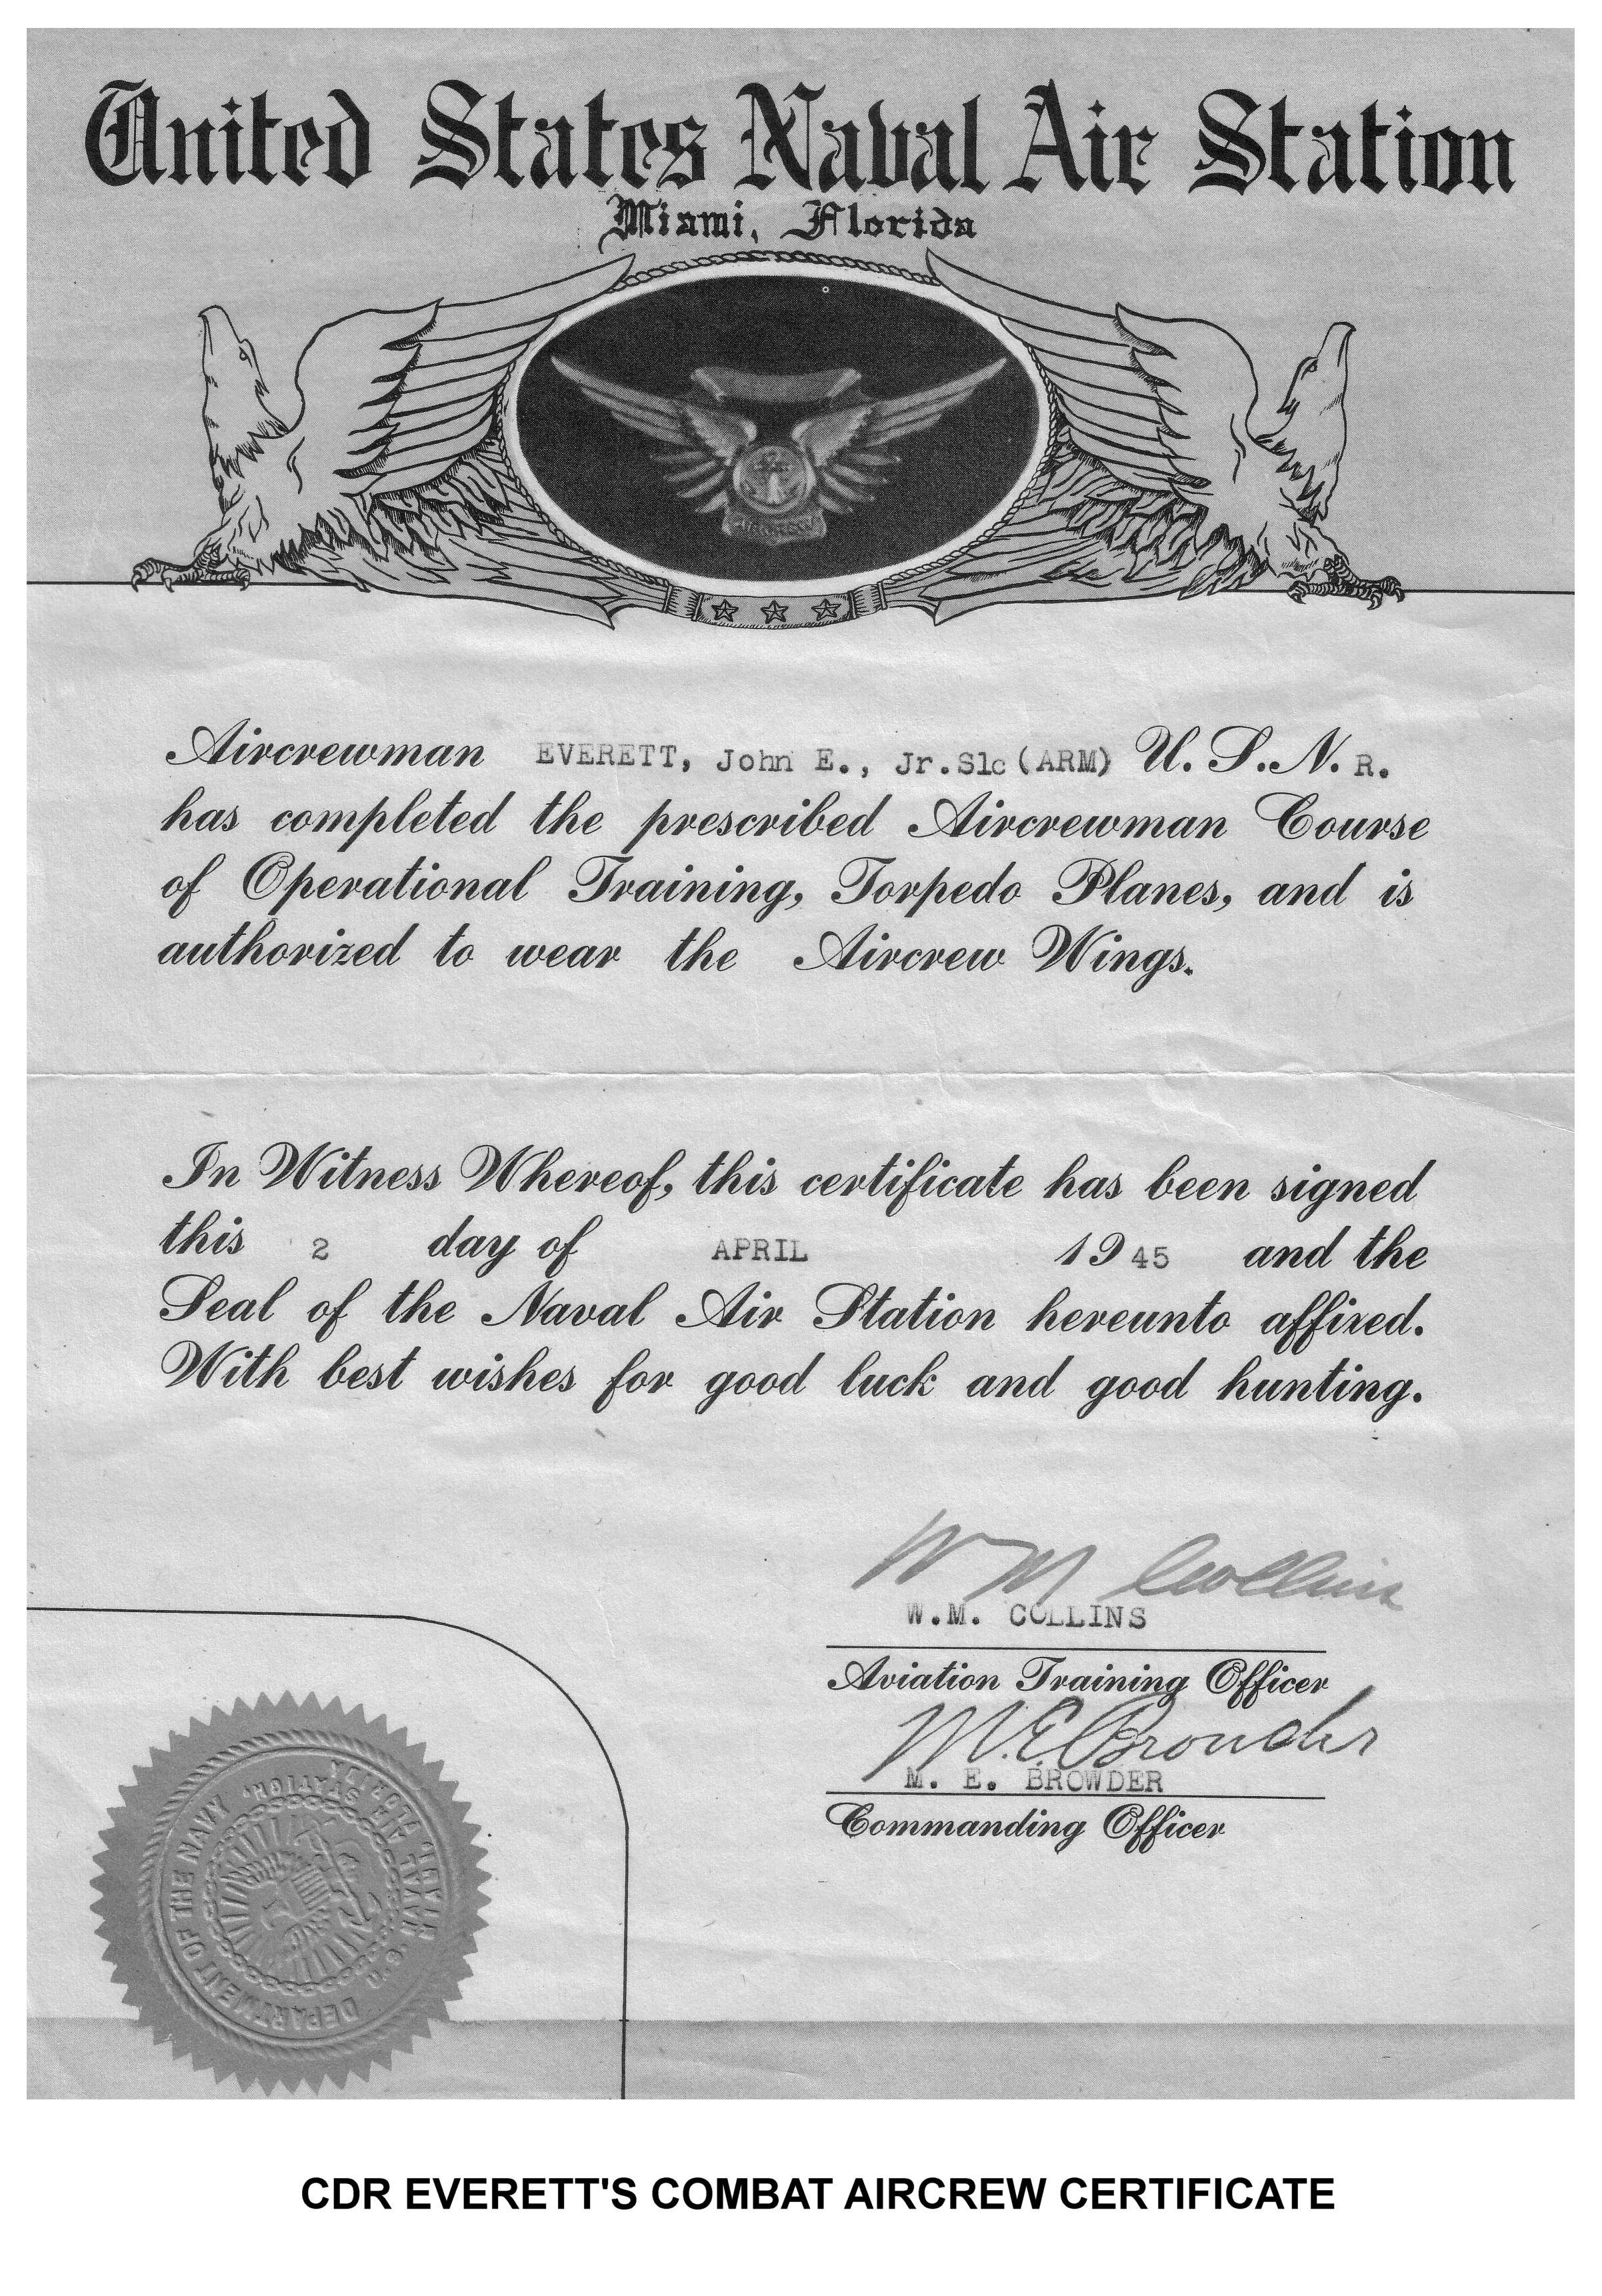 United States Naval Air Station
Miami, Florida
AIRCREW
Aircrewman EVERETT, John E., Jr.S1c(ARM) U.S.N.R.
has completed the prescribed Aircrewman Course
of Operational Training, Torpedo Planes, and is
authorized to wear the Aircrew Wings.
In Witness Whereof, this certificate has been signed
this 2 day of APRIL 1945 and the
Seal of the Naval Air Station hereunto affixed.
With best wishes for good luck and good hunting.
W M Collins
W.M. COLLINS
Aviation Training Officer
M.E. Browder
M. E. BROWDER
Commanding Officer
DEPARTMENT OF THE NAVY
U.S. NAVAL AIR STATION,
CDR EVERETT'S COMBAT AIRCREW CERTIFICATE